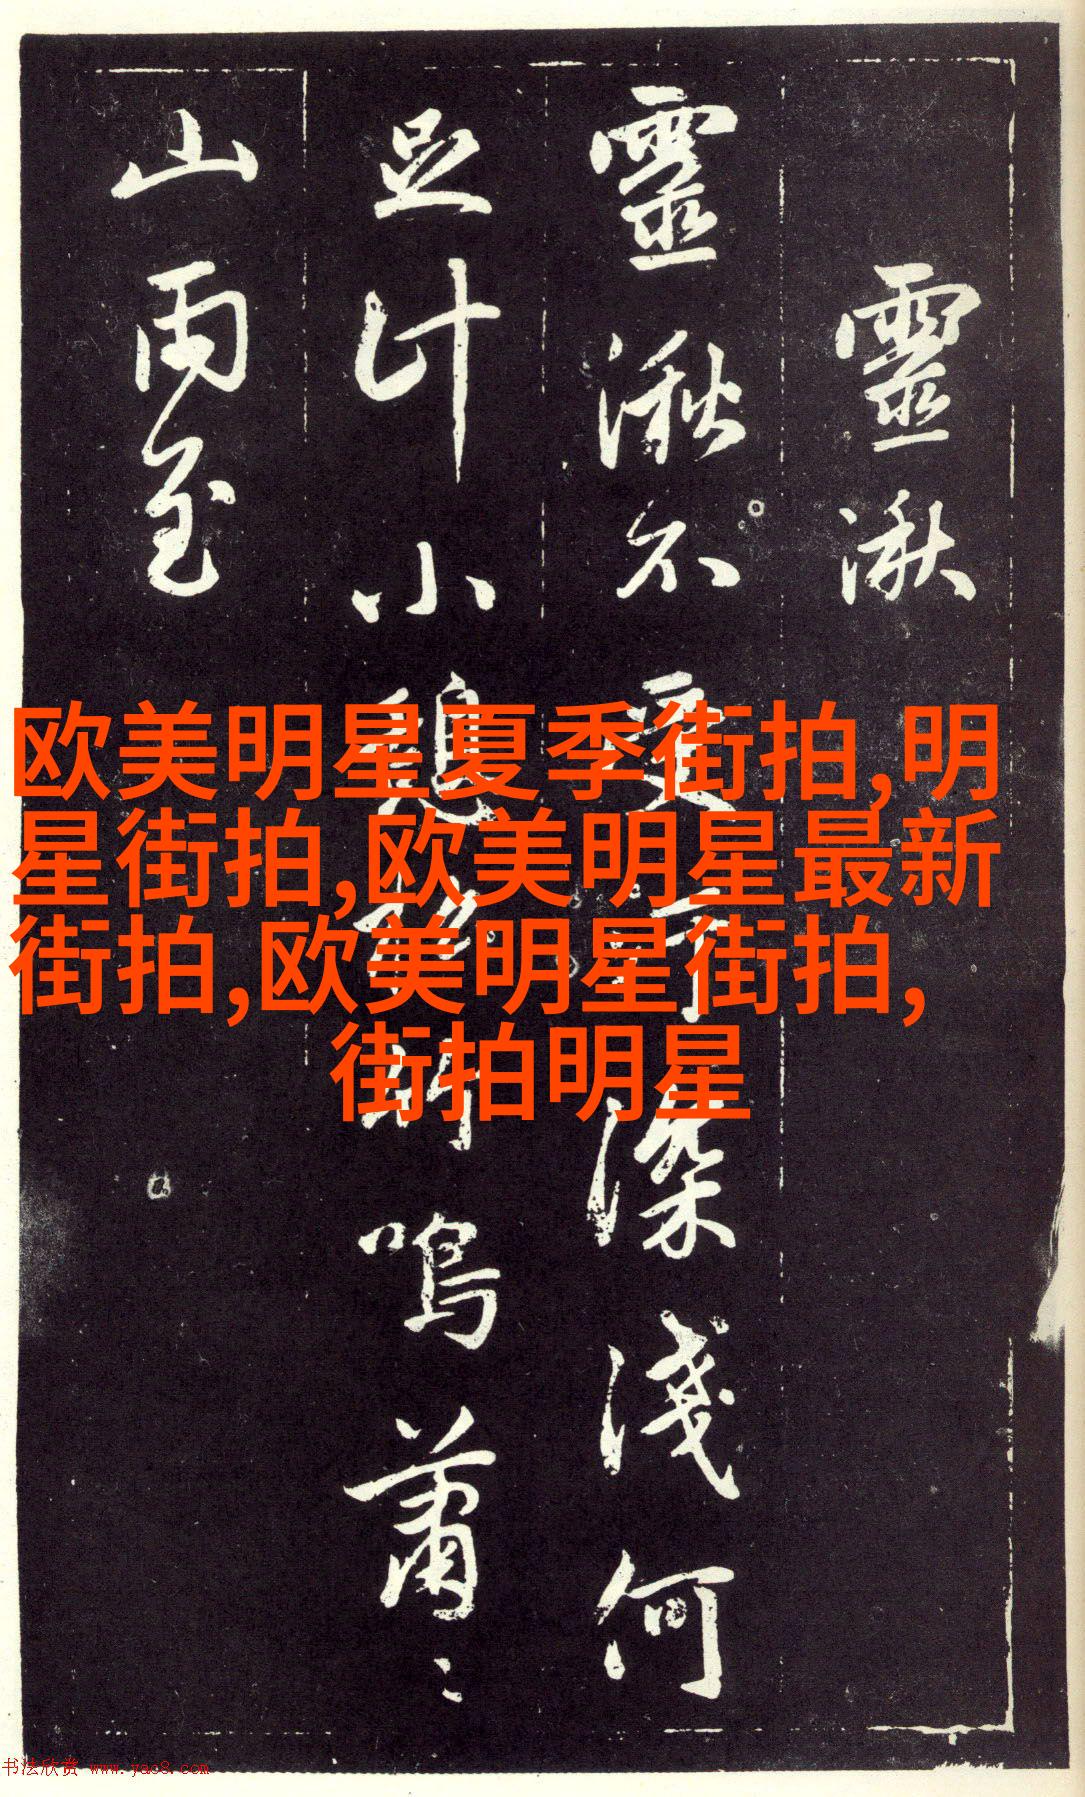 靈湫
靈湫不受汙深淺何
足計小憩聽師鳴蕭〻
山雨至
欧美明星夏季街拍,明
星街拍,欧美明星最新
街拍,欧美明星街拍,
街拍明星
书法欣赏 www.yac8.com